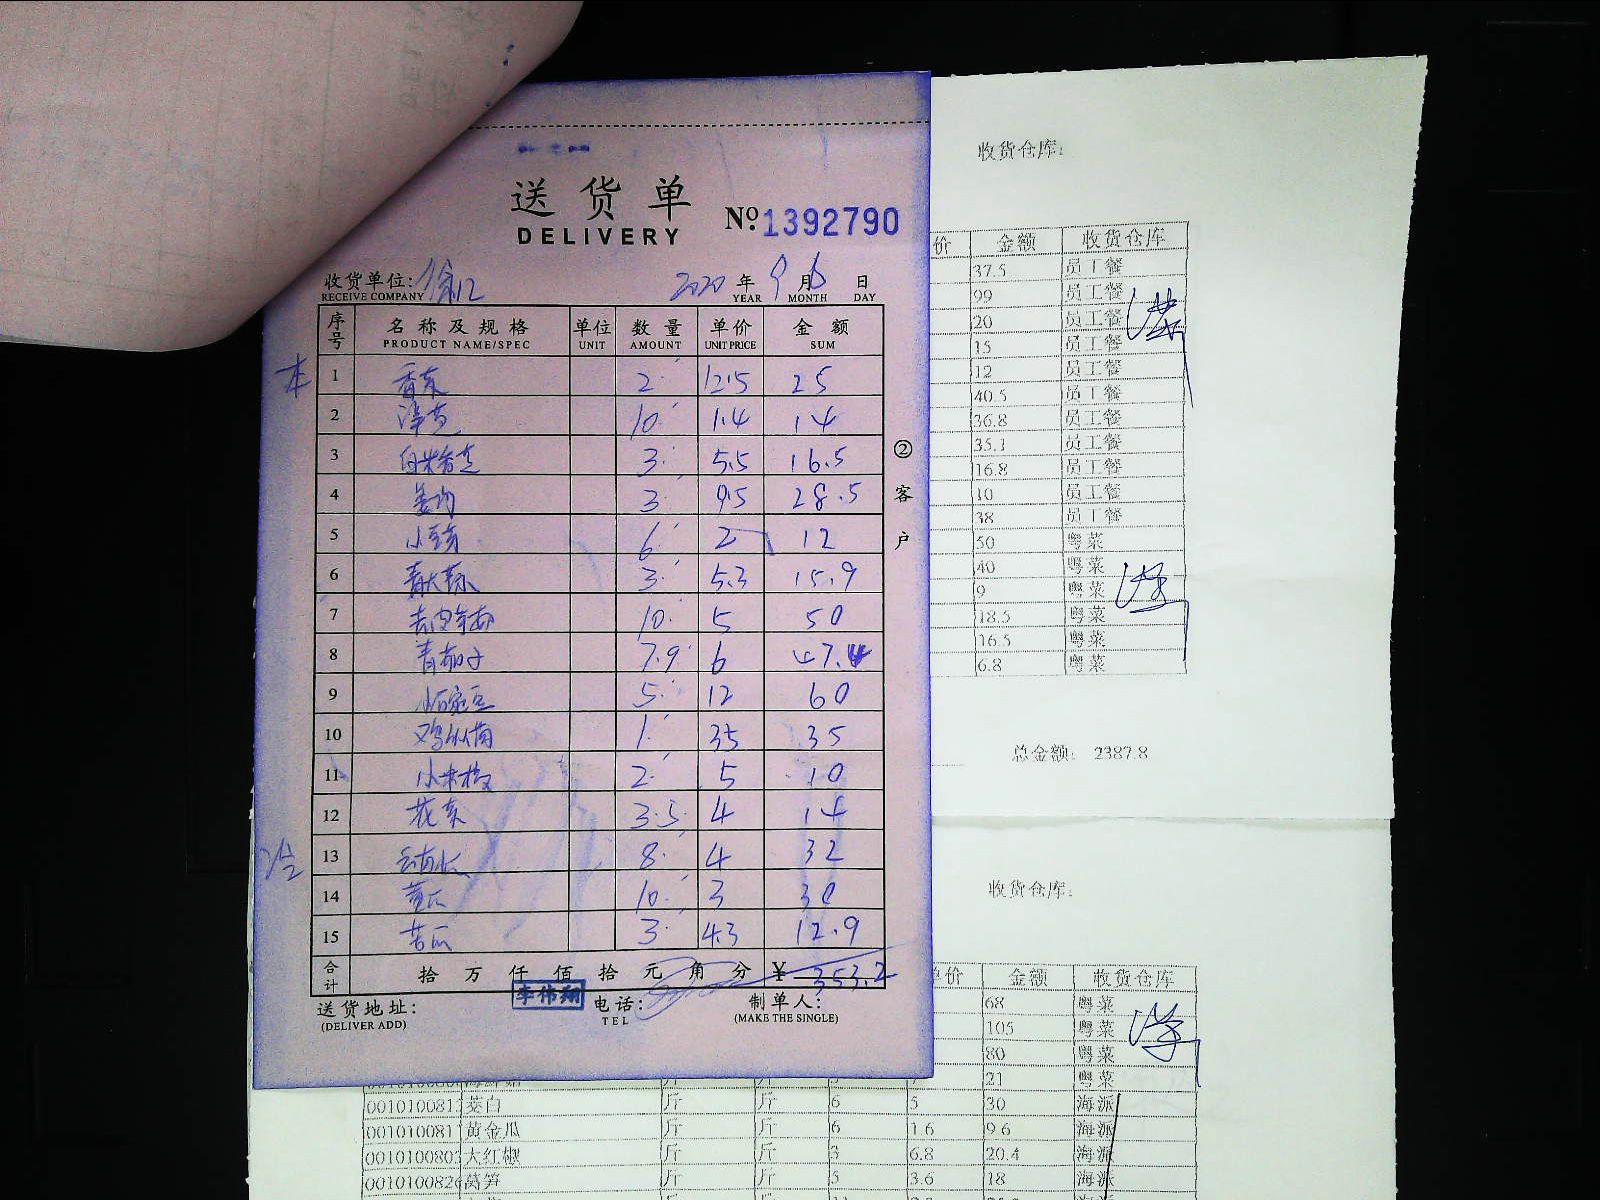 送货单
DELIVERY
Nº 1392790
收货单位:徐汇 2020 年 9 月 6 日
RECEIVE COMPANY YEAR MONTH DAY
序号 名称及规格 单位 数量 单价 金额
PRODUCT NAME/SPEC UNIT AMOUNT UNIT PRICE SUM
本
1 香菜 2 12.5 25
2 洋芋 10 1.4 14
3 3 5.5 16.5
4 姜肉 3 9.5 28.5
5 6 2 12
6 3 5.3 15.9
7 10 5 50
8 青茄子 7.9 6 47.4
9 5 12 60
10 鸡枞菌 1 35 35
11 小米椒 2 5 10
12 花菜 3.5 4 14
13 8 4 32
14 黄瓜 10 3 30
15 苦瓜 3 4.3 12.9
合计 拾 万 仟 佰 拾 元 角 分 ¥ 353.2
送货地址: 李伟翔 电话: 制单人:
(DELIVER ADD) TEL (MAKE THE SINGLE)
②客户
收货仓库:
价 金额 收货仓库
37.5 员工餐
99 员工餐
20 员工餐
15 员工餐
12 员工餐
40.5 员工餐
36.8 员工餐
35.1 员工餐
16.8 员工餐
10 员工餐
38 员工餐
50 粤菜
40 粤菜
9 粤菜
18.5 粤菜
16.5 粤菜
6.8 粤菜
总金额: 2387.8
收货仓库:
单价 金额 收货仓库
68 粤菜
105 粤菜
80 粤菜
21 粤菜
001010081 茭白 斤 斤 6 5 30 海派
001010081 黄金瓜 斤 斤 6 1.6 9.6 海派
001010080 大红椒 斤 斤 3 6.8 20.4 海派
001010082 莴笋 斤 斤 5 3.6 18 海派